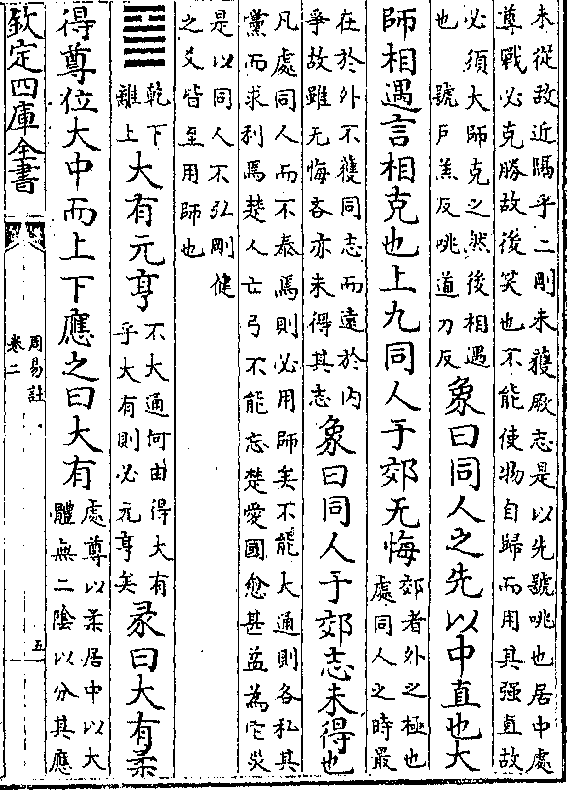 未從故近隔乎二剛未獲厥志是以先號咷也居中處
尊戰必克勝故後笑也不能使物自歸而用其强直故
必須大師克之然後相遇
也 號戶羔反咷道刀反
象曰同人之先以中直也大
師相遇言相克也上九同人于郊无悔
郊者外之極也
處同人之時最
在於外不獲同志而遠於內
爭故雖无悔吝亦未得其志
象曰同人于郊志未得也
凡處同人而不泰焉則必用師矣不能大通則各私其
黨而求利焉楚人亡弓不能忘楚愛國愈甚益為它災
是以同人不弘剛健
之爻皆至用師也
䷍
乾下
離上
大有元亨
不大通何由得大有
乎大有則必元亨矣
彖曰大有柔
得尊位大中而上下應之曰大有
處尊以柔居中以大
體無二陰以分其應
欽定四庫全書
周易註
卷二
五